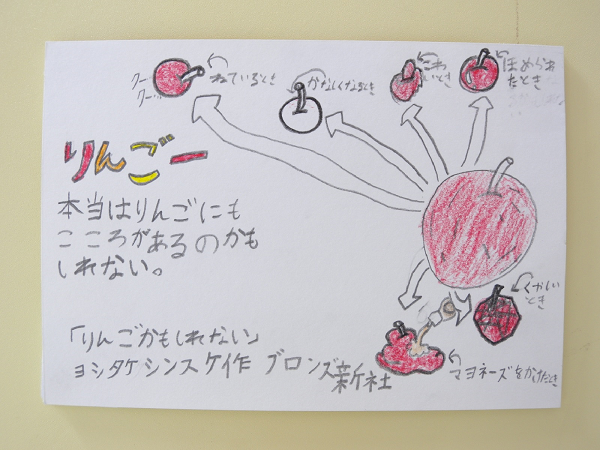 クー
クー
ねているとき
かなしくなるとき
こわ
いとき
ほめられ
たとき
りんごー
本当はりんごにも
こころがあるのかも
しれない。
とき
「りんごかもしれない」
ヨシタケシンスケ作 ブロンズ新社
マヨネーズをかけたとき